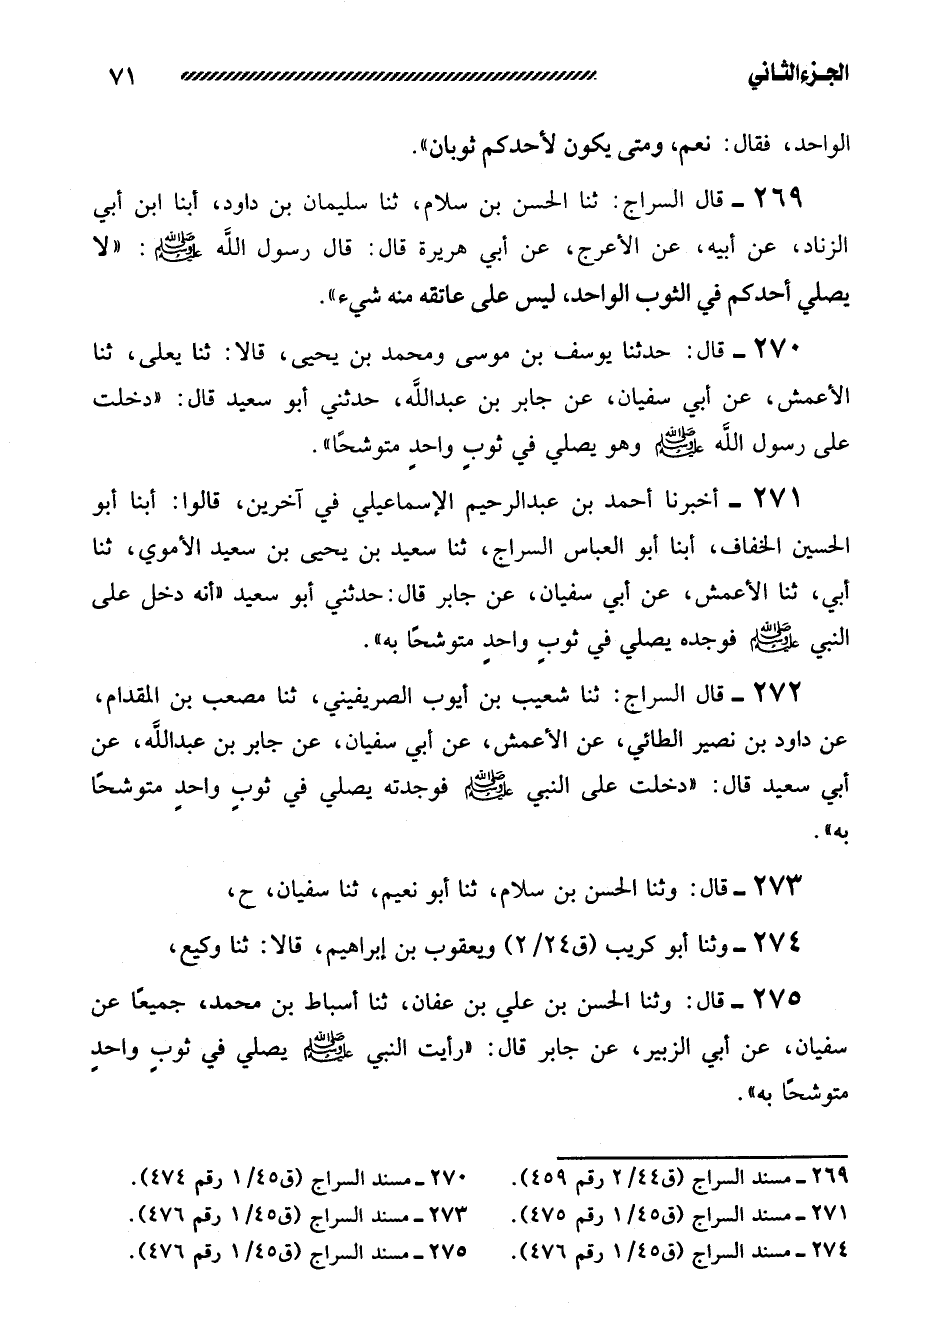 الجزء الثاني ٧١
الواحد، فقال: نعم، ومتى يكون لأحدكم ثوبان».
٢٦٩ ـ قال السراج: ثنا الحسن بن سلام، ثنا سليمان بن داود، أبنا ابن أبي
الزناد، عن أبيه، عن الأعرج، عن أبي هريرة قال: قال رسول اللَّه ﷺ: «لا
يصلي أحدكم في الثوب الواحد، ليس على عاتقه منه شيء».
٢٧٠ ـ قال: حدثنا يوسف بن موسى ومحمد بن يحيى، قالا: ثنا يعلى، ثنا
الأعمش، عن أبي سفيان، عن جابر بن عبداللَّه، حدثني أبو سعيد قال: «دخلت
على رسول اللَّه ﷺ وهو يصلي في ثوبٍ واحدٍ متوشحًا».
٢٧١ ـ أخبرنا أحمد بن عبدالرحيم الإسماعيلي في آخرين، قالوا: أبنا أبو
الحسين الخفاف، أبنا أبو العباس السراج، ثنا سعيد بن يحيى بن سعيد الأموي، ثنا
أبي، ثنا الأعمش، عن أبي سفيان، عن جابر قال: حدثني أبو سعيد «أنه دخل على
النبي ﷺ فوجده يصلي في ثوبٍ واحدٍ متوشحًا به».
٢٧٢ ـ قال السراج: ثنا شعيب بن أيوب الصريفيني، ثنا مصعب بن المقدام،
عن داود بن نصير الطائي، عن الأعمش، عن أبي سفيان، عن جابر بن عبداللَّه، عن
أبي سعيد قال: «دخلت على النبي ﷺ فوجدته يصلي في ثوبٍ واحدٍ متوشحًا
به».
٢٧٣ ـ قال: وثنا الحسن بن سلام، ثنا أبو نعيم، ثنا سفيان، ح،
٢٧٤ ـ وثنا أبو كريب (ق٢/٢٤) ويعقوب بن إبراهيم، قالا: ثنا وكيع،
٢٧٥ ـ قال: وثنا الحسن بن علي بن عفان، ثنا أسباط بن محمد، جميعًا عن
سفيان، عن أبي الزبير، عن جابر قال: «رأيت النبي ﷺ يصلي في ثوبٍ واحدٍ
متوشحًا به».
٢٦٩ ـ مسند السراج (ق٢/٤٤ رقم ٤٥٩). ٢٧٠ ـ مسند السراج (ق١/٤٥ رقم ٤٧٤).
٢٧١ ـ مسند السراج (ق١/٤٥ رقم ٤٧٥). ٢٧٣ ـ مسند السراج (ق١/٤٥ رقم ٤٧٦).
٢٧٤ ـ مسند السراج (ق١/٤٥ رقم ٤٧٦). ٢٧٥ ـ مسند السراج (ق١/٤٥ رقم ٤٧٦).